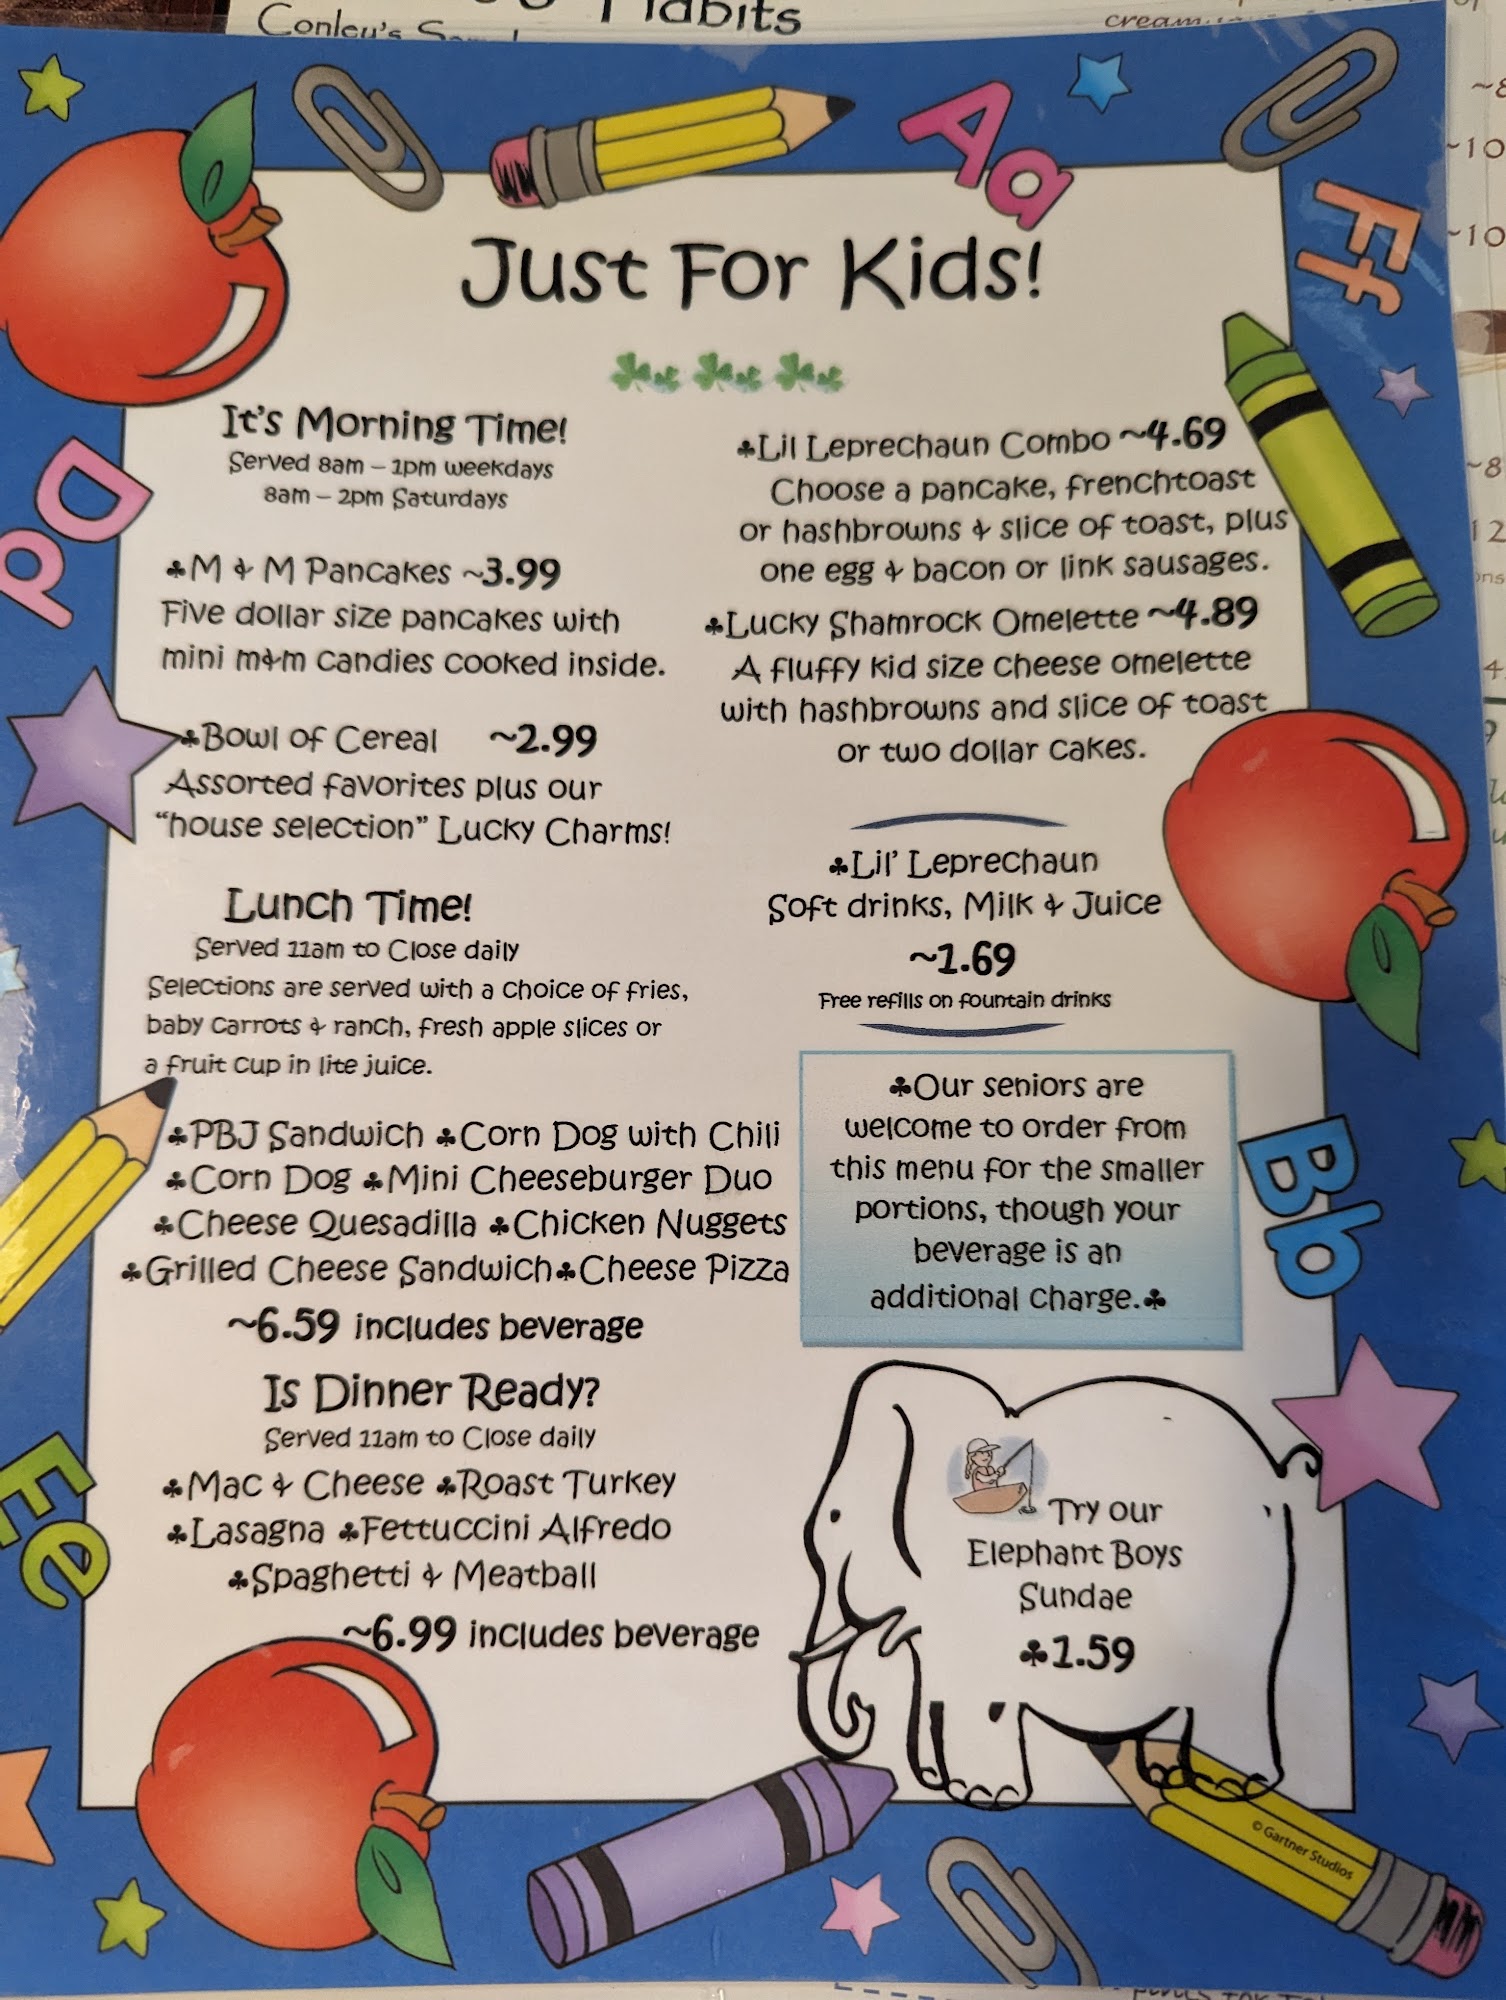 Conley's
Habits
Aa
Ff
Just For Kids!
It's Morning Time!
Served 8am – 1pm weekdays
8am – 2pm Saturdays
♣M & M Pancakes ~3.99
Five dollar size pancakes with
mini m&m candies cooked inside.
♣Bowl of Cereal ~2.99
Assorted favorites plus our
"house selection" Lucky Charms!
Lunch Time!
Served 11am to Close daily
Selections are served with a choice of fries,
baby carrots & ranch, fresh apple slices or
a fruit cup in lite juice.
♣PBJ Sandwich ♣Corn Dog with Chili
♣Corn Dog ♣Mini Cheeseburger Duo
♣Cheese Quesadilla ♣Chicken Nuggets
♣Grilled Cheese Sandwich♣Cheese Pizza
~6.59 includes beverage
Is Dinner Ready?
Served 11am to Close daily
♣Mac & Cheese ♣Roast Turkey
♣Lasagna ♣Fettuccini Alfredo
♣Spaghetti & Meatball
~6.99 includes beverage
♣Lil Leprechaun Combo ~4.69
Choose a pancake, frenchtoast
or hashbrowns & slice of toast, plus
one egg & bacon or link sausages.
♣Lucky Shamrock Omelette ~4.89
A fluffy kid size cheese omelette
with hashbrowns and slice of toast
or two dollar cakes.
♣Lil' Leprechaun
Soft drinks, Milk & Juice
~1.69
Free refills on fountain drinks
♣Our seniors are
welcome to order from
this menu for the smaller
portions, though your
beverage is an
additional charge.♣
Try our
Elephant Boys
Sundae
♣1.59
Dd
Bb
Ee
© Gartner Studios